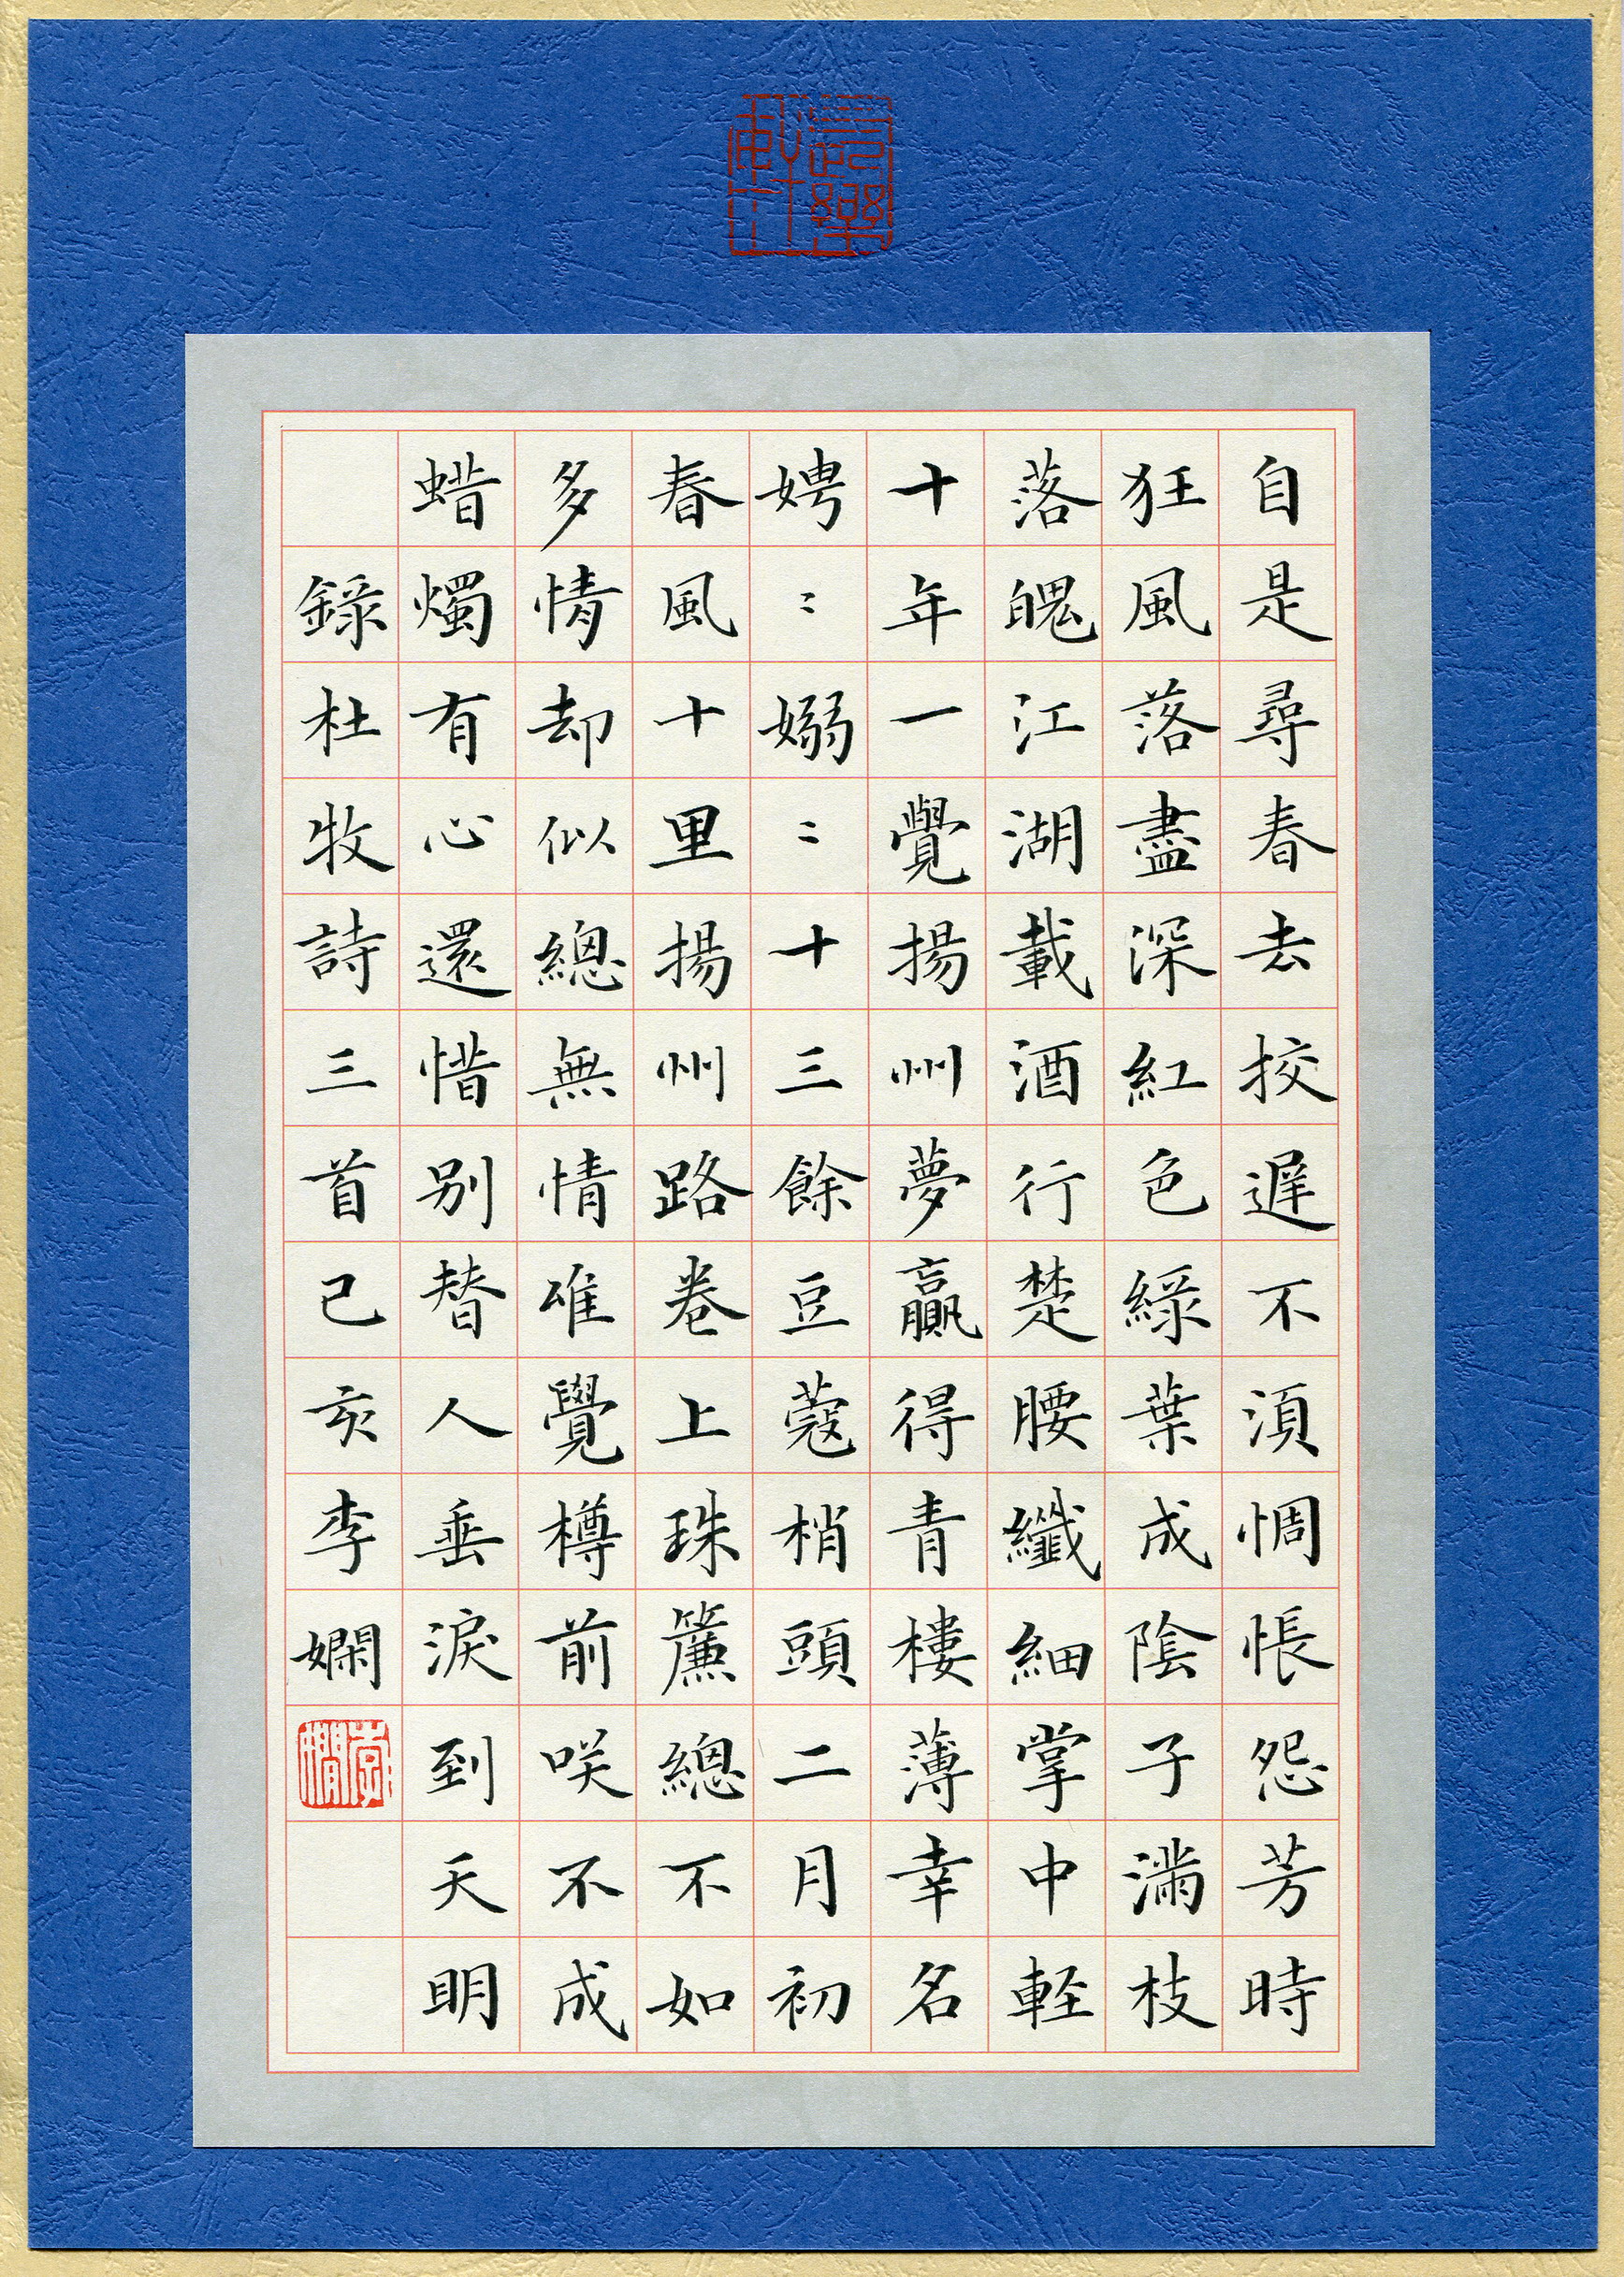 自是尋春去挍遅不湏惆悵怨芳時
狂風落盡深紅色綠葉成陰子滿枝
落魄江湖載酒行楚腰纖細掌中軽
十年一覺揚州夢贏得青樓薄幸名
娉〻嫋〻十三餘豆蔻梢頭二月初
春風十里揚州路卷上珠簾總不如
多情却似總無情唯覺樽前咲不成
蜡燭有心還惜別替人垂淚到天明
錄杜牧詩三首己亥李嫻